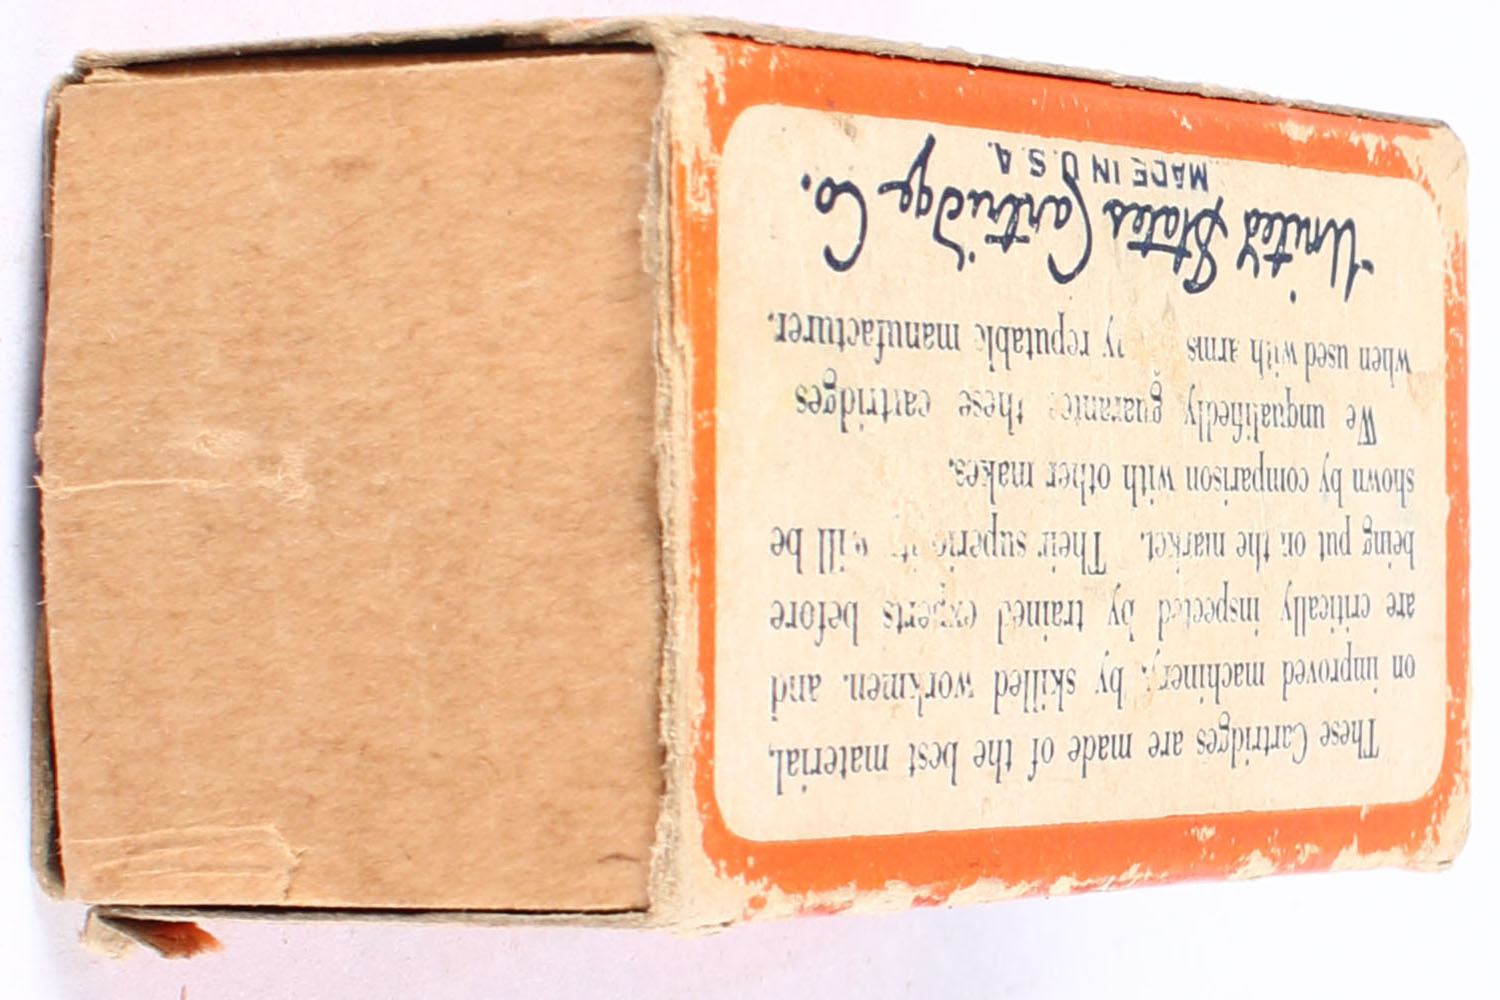 These Cartridges are made of the best material,
on improved machinery, by skilled workmen. and
are critically inspected by trained experts before
being put on the market. Their superiority will be
shown by comparison with other makes.
We unqualifiedly guarantee these cartridges
when used with arms by reputable manufacturer.
United States Cartridge Co.
MADE IN U.S.A.